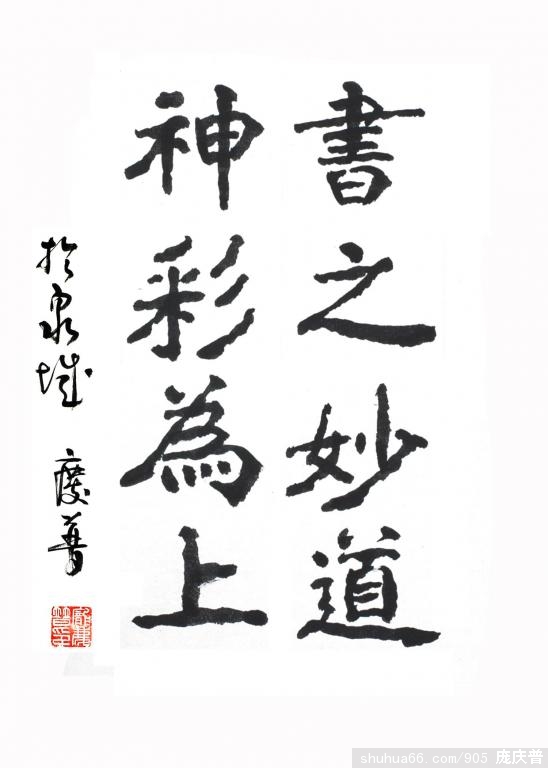 書之妙道
神彩為上
於泉城 慶普
龐慶普印
shuhua66.com/905 庞庆普